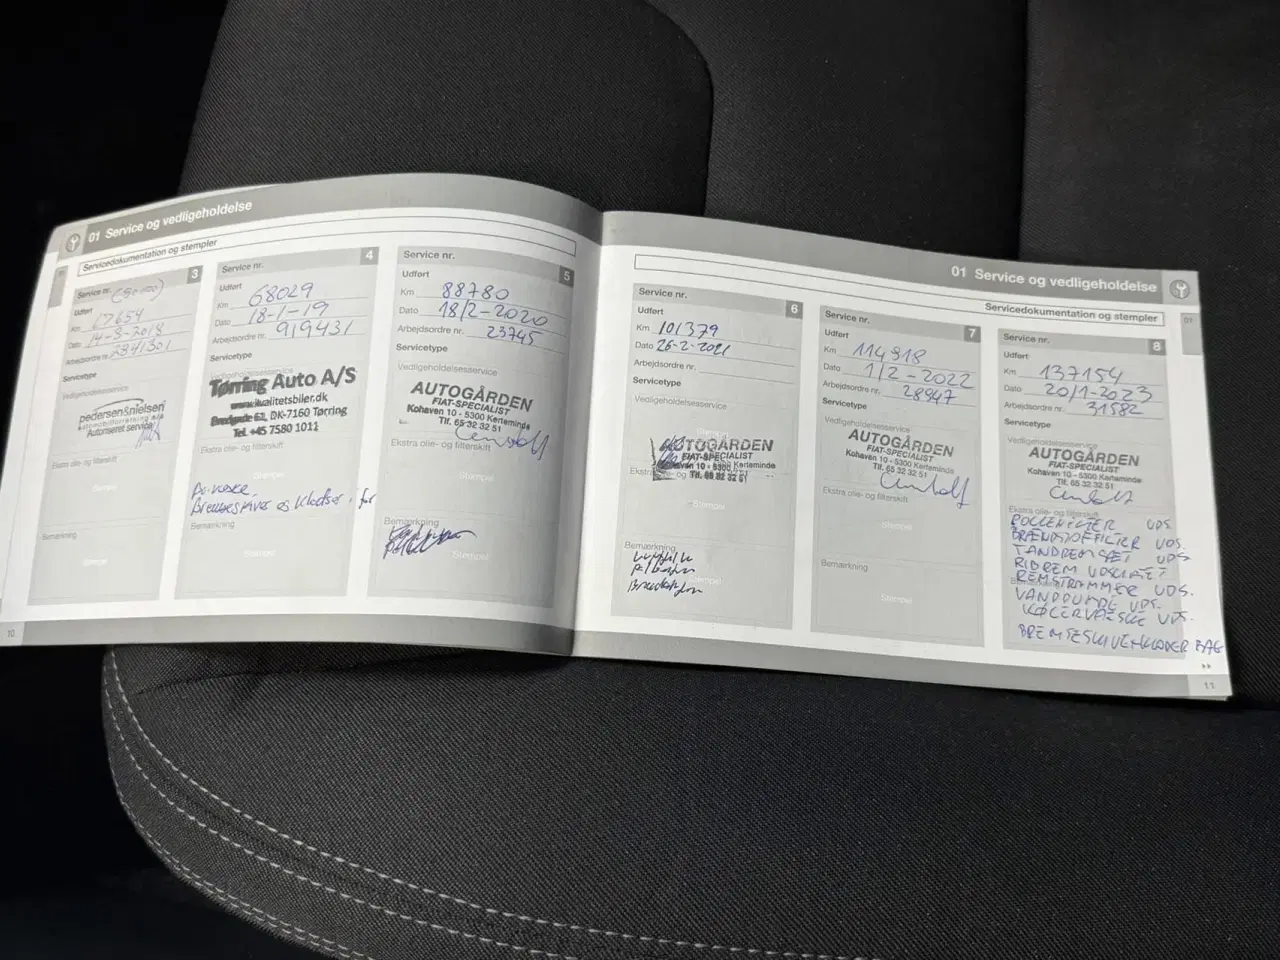 01 Service og vedligeholdelse
Servicedokumentation og stempler
Service nr. 3
Udført
Km
Dato 14-3-2018
Arbejdsordre nr.
Servicetype
Vedligeholdelsesservice
pedersen&nielsen
Autoriseret service
Ekstra olie- og filterskift
Stempel
Bemærkning
Stempel
Service nr. 4
Udført
Km 68029
Dato 18-1-19
Arbejdsordre nr. 919431
Servicetype
Vedligeholdelsesservice
Tørring Auto A/S
www.kvalitetsbiler.dk
Bredgade 62, DK-7160 Tørring
Tel. +45 7580 1011
Ekstra olie- og filterskift
Stempel
Bremseskiver og klodser. for
Bemærkning
Stempel
Service nr. 5
Udført
Km 88780
Dato 18/2-2020
Arbejdsordre nr. 23745
Servicetype
Vedligeholdelsesservice
AUTOGÅRDEN
FIAT-SPECIALIST
Kohaven 10 - 5300 Kerteminde
Tlf. 65 32 32 51
Ekstra olie- og filterskift
Stempel
Bemærkning
Stempel
10
01 Service og vedligeholdelse
Servicedokumentation og stempler
01
Service nr. 6
Udført
Km 101379
Dato 26-2-2021
Arbejdsordre nr.
Servicetype
Vedligeholdelsesservice
Stempel
AUTOGÅRDEN
FIAT-SPECIALIST
Kohaven 10 - 5300 Kerteminde
Tlf. 65 32 32 51
Stempel
Bemærkning
Stempel
Service nr. 7
Udført
Km 114918
Dato 1/2-2022
Arbejdsordre nr. 28947
Servicetype
Vedligeholdelsesservice
AUTOGÅRDEN
FIAT-SPECIALIST
Kohaven 10 - 5300 Kerteminde
Tlf. 65 32 32 51
Ekstra olie- og filterskift
Stempel
Bemærkning
Stempel
Service nr. 8
Udført
Km 137154
Dato 20/1-2023
Arbejdsordre nr. 31582
Servicetype
Vedligeholdelsesservice
AUTOGÅRDEN
FIAT-SPECIALIST
Kohaven 10 - 5300 Kerteminde
Tlf. 65 32 32 51
Ekstra olie- og filterskift
POLLENFILTER UDS.
BRÆNDSTOFFILTER UDS.
TANDREMSÆT UDS
RIBREM UDSKIFTET
REMSTRAMMER UDS.
VANDPUMPE UDS.
KØLERVÆSKE UDS.
BREMSESKIVER/KLODSER BAG
11